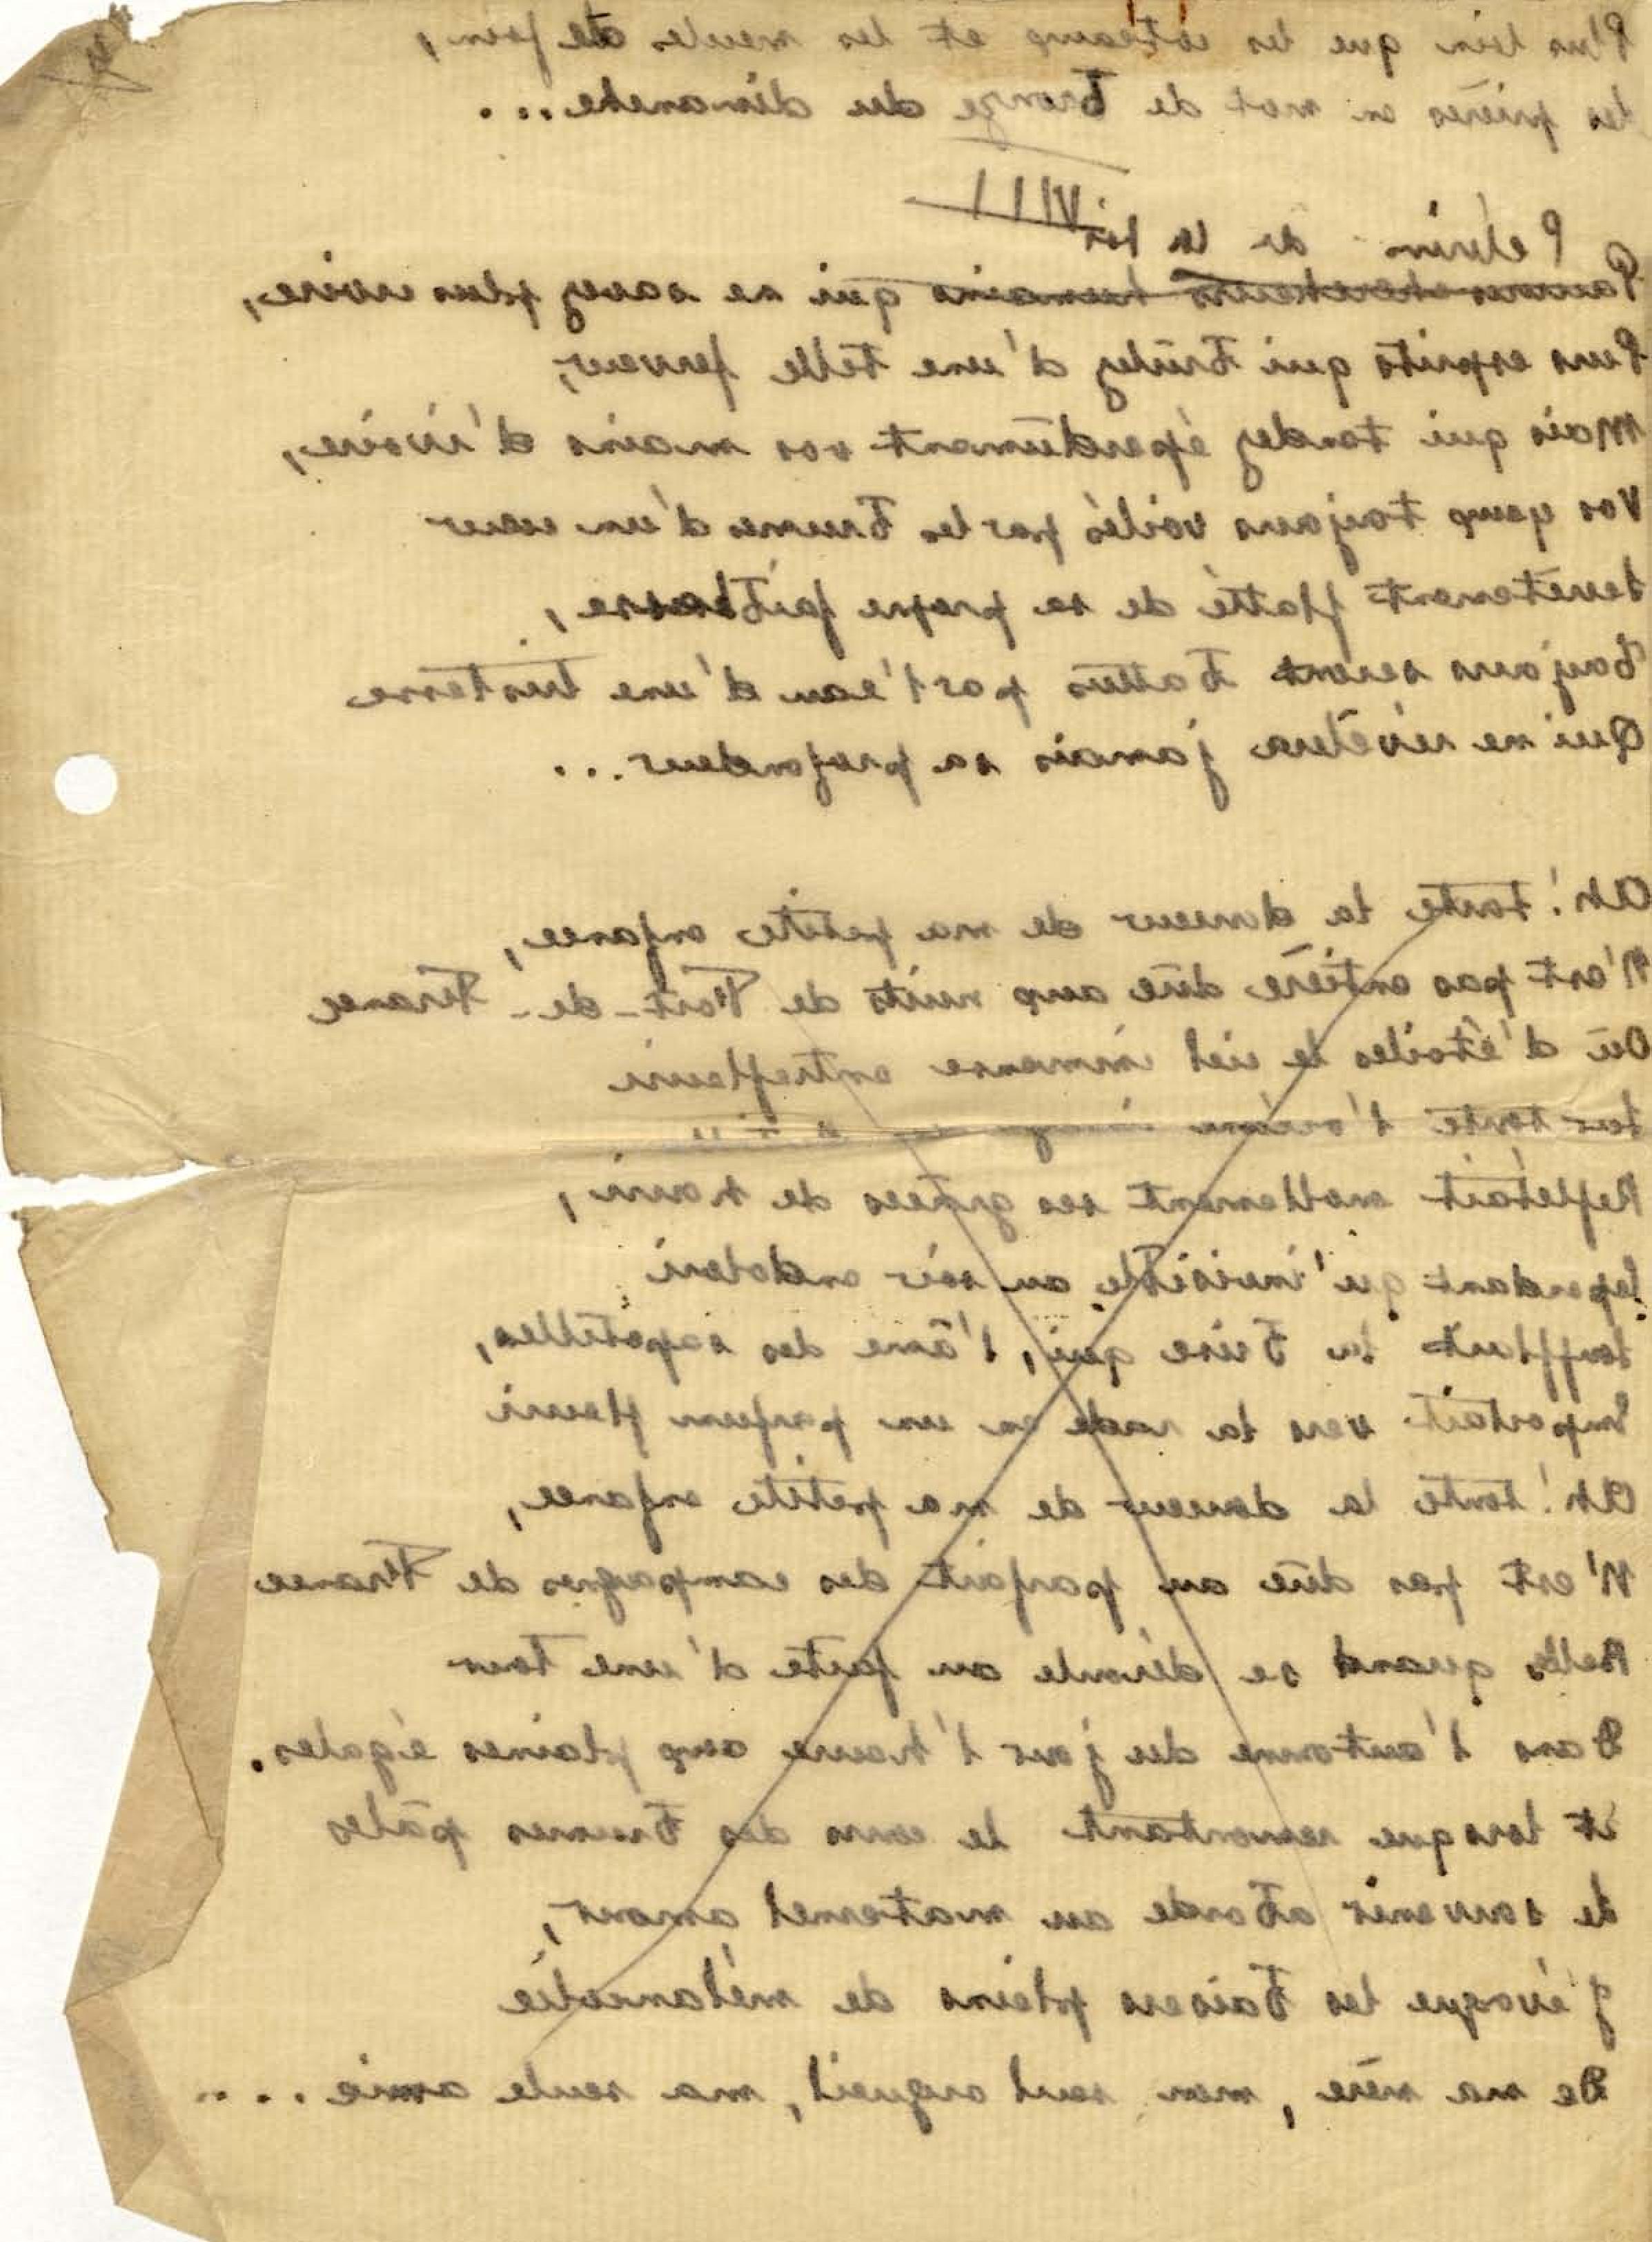 Plus loin que les coteaux et les meules de foin,
les prières en mot de bronze du dimanche....
VIII
Pèlerin de la foi
Pauvres chercheurs humains qui ne savez plus croire,
Purs esprits qui brûlez d'une telle ferveur,
Mais qui tendez éperdûment vos mains d'ivoire,
Vos yeux toujours voilés par les brumes d'un cœur
Secrètement flatté de sa propre faiblesse,
Toujours seront battus par l'eau d'une tristesse
Qui ne révèlera jamais sa profondeur...
Ah! toute la douceur de ma petite enfance,
N'est pas entière dûe aux nuits de Fort-de-France
Où d'étoiles le ciel immense entrefleuri
Sur toute l'océane
Reflétait mollement ses grâces de houri,
Cependant qu'invisible au soir endolori
Soufflait la brise qui, l'âme des sapotilles,
Emportait vers la rade en un parfum fleuri
Ah! toute la douceur de ma petite enfance,
N'est pas dûe au parfait des campagnes de France
Belles quand se déroule au faite d'une tour
Dans l'automne du jour l'heure aux plaines égales.
Et lorsque remontant le cours des brumes pâles
Le souvenir aborde au maternel amour,
J'évoque les baisers pleins de mélancolie
De ma mère, mon seul orgueil, ma seule amie.....